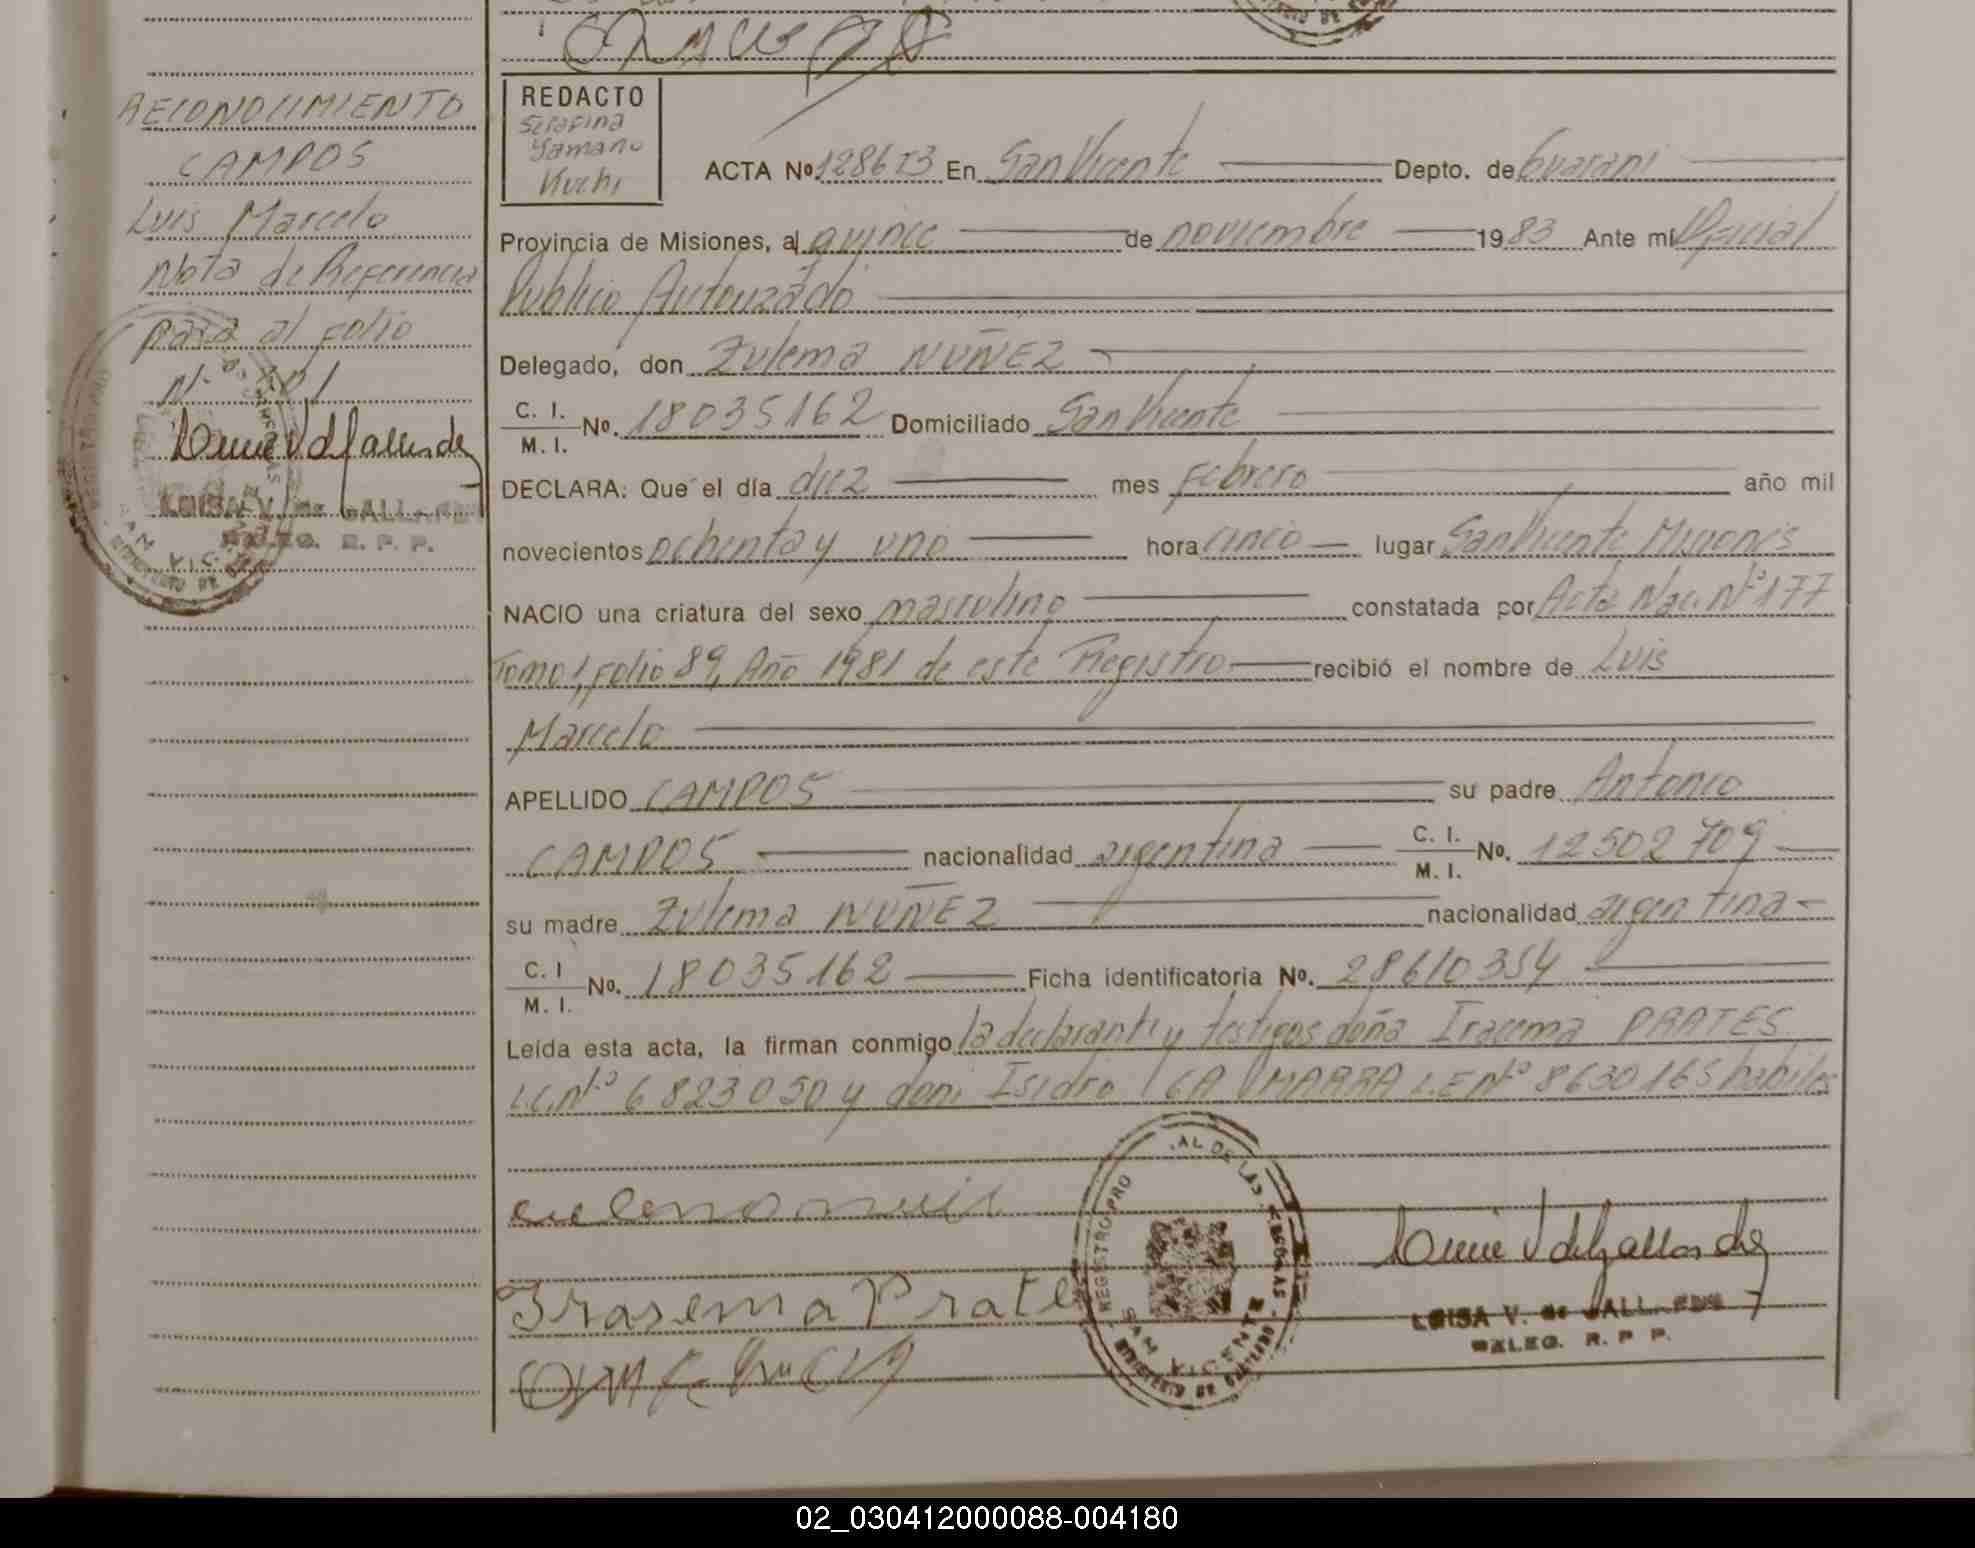 REDACTO
Serafina
Yamano
Kuchi
RECONOCIMIENTO
CAMPOS
Luis Marcelo
Nota de Referencia
pasa al folio
Nº
LUISA V. de GALLARDO
DELEG. R. P. P.
ACTA Nº. 1286 T3 En San Vicente Depto. de Guarani
Provincia de Misiones, al quince de noviembre 1983 Ante mí Oficial
Publico Autorizado
Delegado, don Zulema NUÑEZ
C. I.
M. I. Nº. 18035162 Domiciliado San Vicente
DECLARA: Que el día diez mes febrero año mil
novecientos ochenta y uno hora cinco lugar San Vicente Misiones
NACIO una criatura del sexo masculino constatada por Acta Nac. Nº 177
Tomo 1, Folio 89, Año 1981 de este Registro recibió el nombre de Luis
Marcelo
APELLIDO CAMPOS su padre Antonio
CAMPOS nacionalidad argentina C. I.
M. I. Nº. 12502709
su madre Zulema NUÑEZ nacionalidad argentina
C. I
M. I. Nº. 18035162 Ficha identificatoria Nº. 28610354
Leída esta acta, la firman conmigo la declarante y testigos doña Iracema PRATES
L.C.Nº 6823050 y don: Isidro GAMARRA L.E Nº 8630165 habiles
Irasema Prate
REGISTRO PRO AL DE LAS PERSONAS
SAN VICENTE
LUISA V. de GALLARDO
DELEG. R. P. P.
02_030412000088-004180